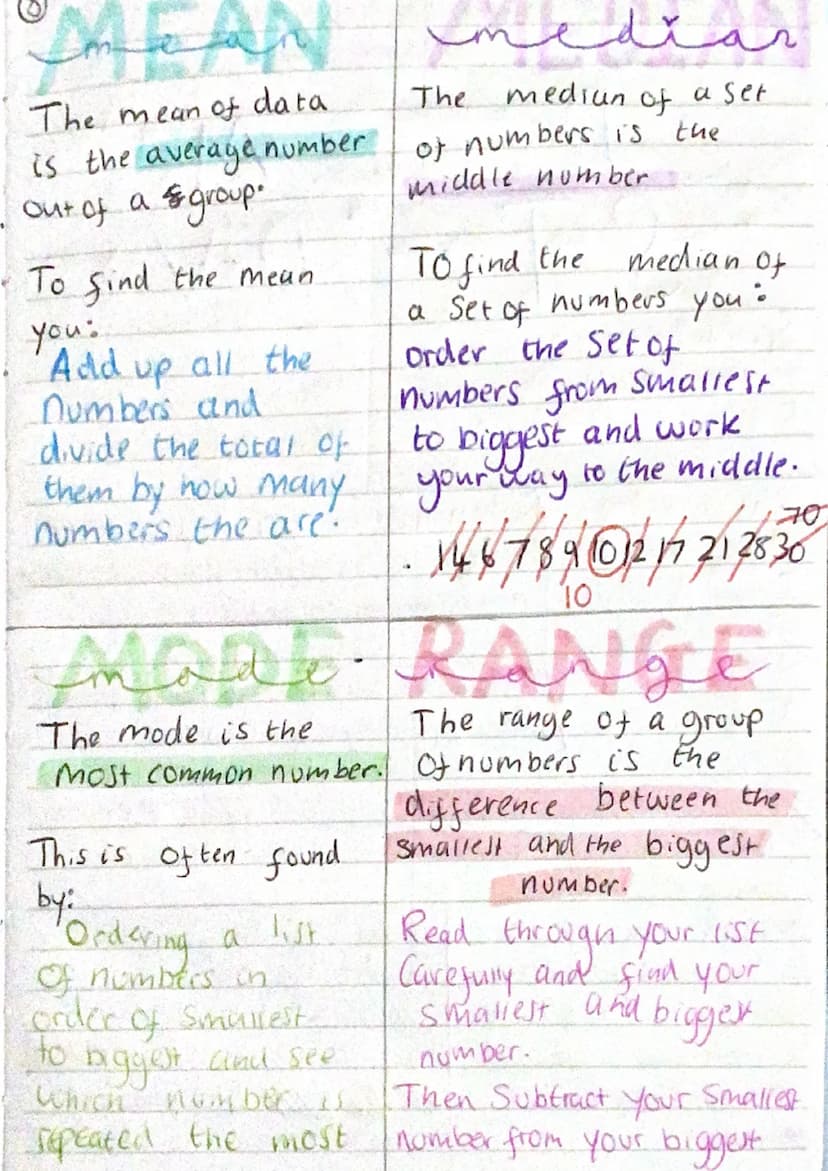 MEAN
mean
The mean of data
is the average number
out of a group.
To find the mean
you:
Add up all the
numbers and
divide the total of
them by how many
numbers the are.
MEDIAN
median
The median of a set
of numbers is the
middle number
To find the median of
a set of numbers you:
order the set of
numbers from smallest
to biggest and work
your way to the middle.
70
. 1 4 6 7 8 9 10 12 17 21 28 30
10
MODE
mode
The mode is the
most common number.
This is often found
by:
Ordering a list
of numbers in
order of smallest
to biggest and see
which number is
repeated the most
RANGE
range
The range of a group
of numbers is the
difference between the
smallest and the biggest
number.
Read through your list
carefully and find your
smallest and biggest
number.
Then subtract your smallest
number from your biggest